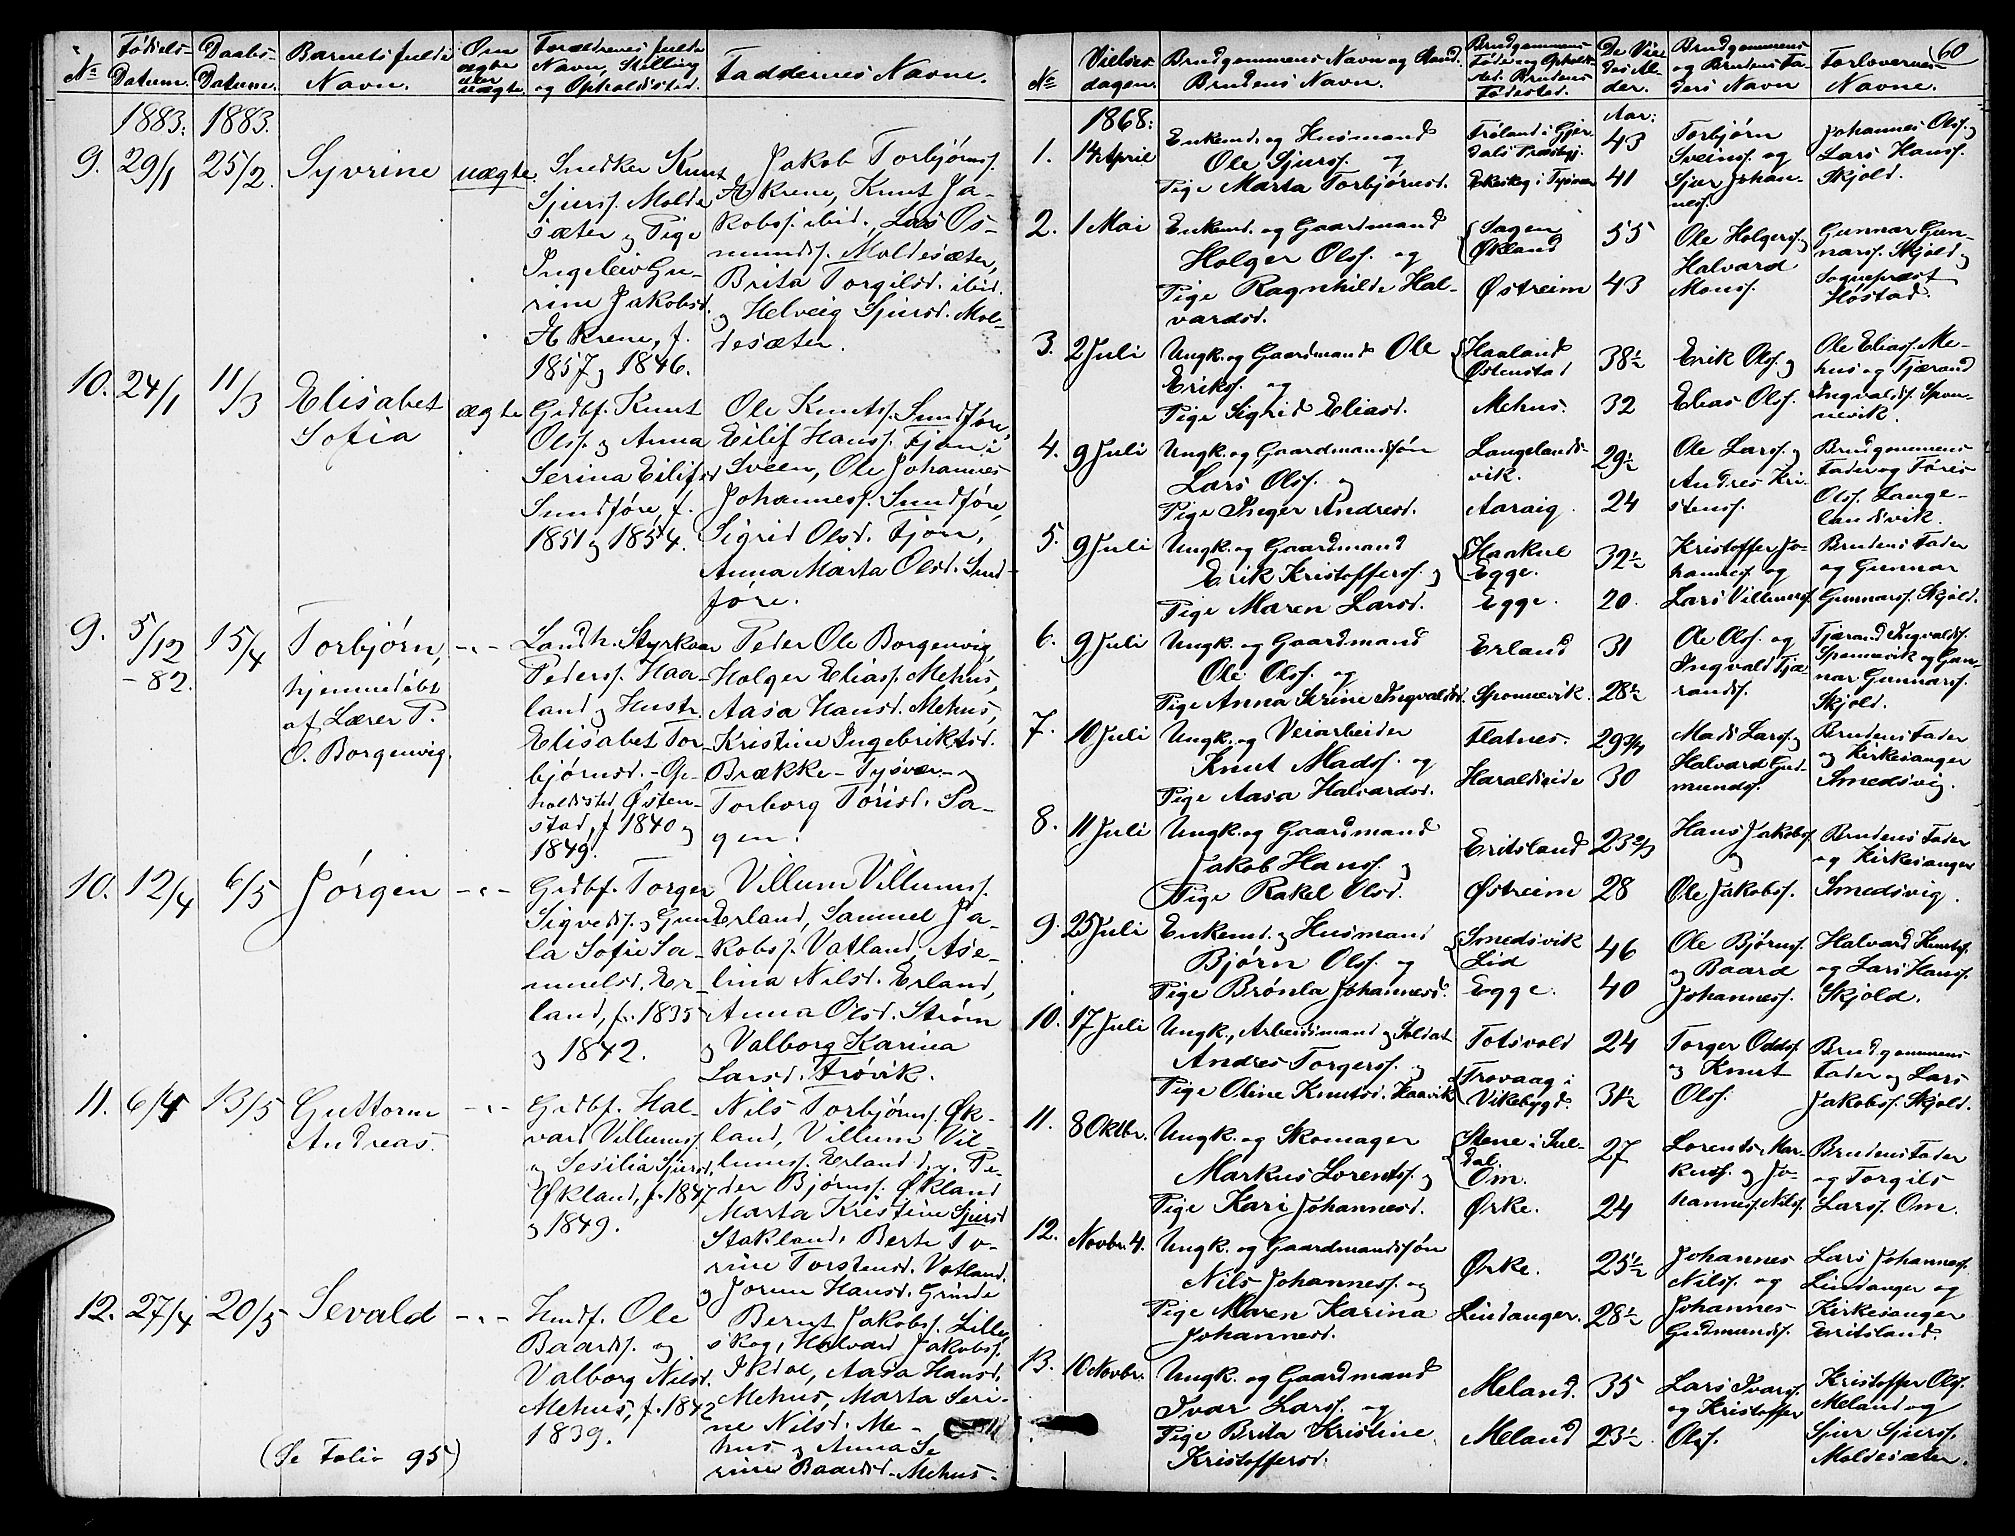 No
Fødsels-
Datum.
Daabs-
Datum.
Barnets fulde
Navn.
Om
ægte
eller
uægte
Forældrenes fulde
Navn, Stilling
og Opholdssted.
Faddernes Navne.
1883.
1883.
9.
29/1
25/2.
Syvrine
uægte.
Snedker Knut
Sjurss. Molde
sæter og Pige
Ingeleiv Gu-
rine Jakobsd.
Akrene, f.
1857 og 1846.
Jakob Torbjørnss.
Akrene, Knut Ja-
kobss. ibid., Lars Os-
mundss. Moldesæter,
Brita Torgilsd. ibid.
og Helveig Sjursd. Mol-
desæter.
10.
24/1
11/3
Elisabet
Sofia
ægte
Grdbf. Knut
Olss. og Anna
Serina Eilifsd
Sundføre, f.
1851 og 1854.
Ole Knutss. Sundføre,
Eilif Hanss. Fjon i
Sveen, Ole Johannes
Johanness. Sundføre,
Sigrid Olsd. Fjon,
Anna Marta Olsd. Sund-
føre.
9.
5/12
-82.
15/4
Torbjørn,
hjemmedøbt
af Lærer P.
O. Borgenvig.
-"-
Landh. Styrkar
Pederss. Haa-
land og Hustr.
Elisabet Tor-
bjørnsd. - Op-
holdssted Østen-
stad, f. 1840 og
1849.
Peder Ole Borgenvig,
Holger Eliass. Mehus,
Aasa Hansd. Mehus,
Kristine Ingebriktsd.
Brække - Tysvær - og
Torborg Torisd. Sa-
gen.
10.
12/4
6/5
Jørgen
-"-
Grdbf. Torger
Sigvedss. og Gun-
la Sofie Sa-
muelsd. Er-
land, f. 1835
og 1842.
Villum Villumss.
Erland, Samuel Ja-
kobss. Vatland, Ase-
lina Nilsd. Erland,
Anna Olsd. Strøm
og Valborg Karina
Larsd. Frøvik.
11.
6/4
13/5
Guttorm
Andreas.
-"-
Grdbf. Hal-
vard Villumss.
og Sesilia Sjursd.
Økland, f. 1847
og 1849.
Nils Torbjørnss. Øk-
land, Villum Vil-
lumss. Erland og Pe-
der Bjørnss. Økland
Marta Kristine Sjursd
Stakland, Berte To-
rine Torstensd. Vatland.
og Jorun Hansd. Grinde
12.
27/4
20/5
Sevald
-"-
Husmf. Ole
Baardss. og
Valborg Nilsd.
Mehus, f. 1842
1839.
Bernt Jakobss. Lille
skog, Halvard Jakobss.
Ikdal, Aasa Hansd.
Mehus, Marta Seri-
ne Nilsd. Me-
hus og Anna Se
rine Baardsd. Mehus.
(Se Folio 95)
60
No
Vielses-
dagen.
Brudgommens Navn og Stand.
Brudens Navn.
Brudgommens
Føde og Opholds-
sted. Brudens
Fødested.
De Vie-
des Al-
der.
Brudgommens
og Brudens Fa-
ders Navn
Forlovernes
Navne.
1868:
Aar:
1.
14 April
Enkemd. og Husmand
Ole Sjurss. og
Pige Marta Torbjørnsd.
Frøland i Gjer
dals Præstegj.
Eikeskog i Tysvær
43
41
Torbjørn
Sveinss. og
Sjur Johan-
ness.
Johannes Olss. og
Lars Hanss.
Skjold.
2.
1 Mai
Enkemd. og Gaardmand
Holger Olss. og
Pige Ragnhilde Hal-
vardsd.
Sagen
Økland
Østreim
55
43
Ole Holgerss. og
Halvard
Monss.
Gunnar Gun-
narss. Skjold og
Sognepræst
Høstad.
3.
2 Juli
Ungk. og Gaardmand Ole
Erikss. og
Pige Sigrid Eliasd.
Haaland
Østenstad
Mehus.
38½
32
Erik Olss. og
Elias Olss.
Ole Eliass. Me-
hus og Tjærand
Ingvaldss. Spon-
nevik.
4.
9 Juli
Ungk. og Gaardmandssøn
Lars Olss. og
Pige Inger Andresd.
Langelands-
vik.
Aaraig.
29½
24
Ole Larss. og
Andres Kri-
stenss.
Brudgommens
Fader og Tøris
Olss. Lange-
landsvik.
5.
9 Juli
Ungk. og Gaardmand
Erik Kristofferss. og
Pige Maren Larsd.
Haakul
Egge.
Egge.
32½
20.
Kristoffer Jo-
hanness. og
Lars Villumss.
Brudens Fader
og Gunnar
Gunnarss. Skjold.
6.
9 Juli
Ungk. og Gaardmand
Ole Olss. og
Pige Anna Serine Ingvaldsd.
Erland
Sponnevik.
31
28½
Ole Olss. og
Ingvald Tjæ-
randss.
Tjærand Ingvaldss.
Sponnevik og Gun-
nar Gunnarss.
Skjold.
7.
10 Juli
Ungk. og Veiarbeider
Knut Madss. og
Pige Aasa Halvardsd.
Flatnes.
Haraldseide
29¾
30
Mads Larss. og
Halvard Gud-
mundss.
Brudens Fader
og Kirkesanger
Smedsvig.
8.
11 Juli
Ungk. og Gaardmand
Jakob Hanss. og
Pige Rakel Olsd.
Eritsland
Østreim
23⅔
28
Hans Jakobss.
og
Ole Jakobss.
Brudens Fader
og Kirkesanger
Smedsvig.
9.
25 Juli
Enkemd. og Husmand
Bjørn Olss. og
Pige Brønla Johannesd.
Smedsvik
Lid
Egge.
46
40
Ole Bjørnss.
og Baard
Johanness.
Halvard Knutss.
og Lars Hanss.
Skjold.
10.
17 Juli
Ungk., Arbeidsmand og Soldat
Andres Torgerss. og
Pige Oline Knutsd. Haavik
Totsvold
Trovaag i
Vikebygd.
24
31½
Torger Oddss.
og Knut
Olss.
Brudgommens
Fader og Lars
Jakobss. Skjold.
11.
8 Oktbr.
Ungk. og Skomager
Markus Lorentss. og
Pige Kari Johannesd.
Stene i Sul-
dal.
Om.
Ørke.
27
24
Lorents Mar-
kuss. og Jo-
hannes Nilss.
Brudens Fader
og Torgils
Larss. Om.
12.
Novbr. 4.
Ungk. og Gaardmandssøn
Nils Johanness. og
Pige Maren Karina
Johannesd.
Ørke.
Lindanger.
25½
28½
Johannes
Nilss. og
Johannes
Gudmundss.
Lars Johanness.
Lindanger og
Kirkesanger
Eritsland.
13.
10 Novbr.
Ungk. og Gaardmand
Ivar Larss. og
Pige Brita Kristine
Kristoffersd.
Meland.
Meland
35
23½
Lars Ivarss.
og Kristoffer
Olss.
Kristoffer Olss.
Meland og
Sjur Sjurss.
Moldesæter.